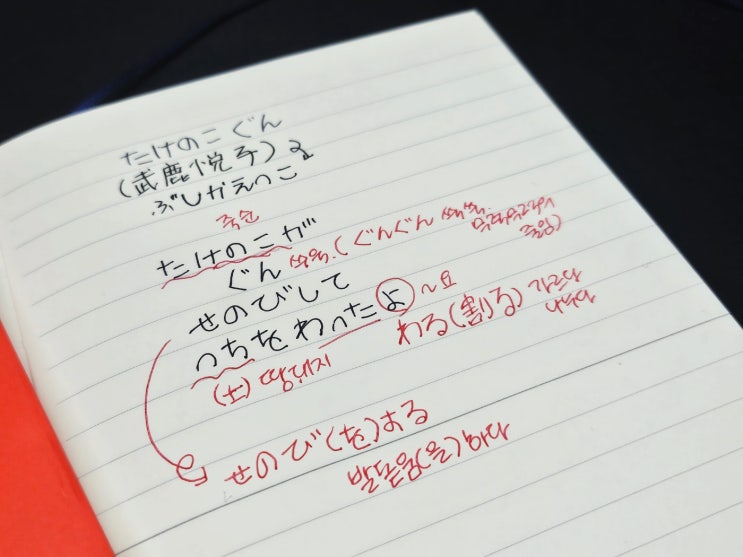 たけのこ ぐん
(武鹿悦子)
ぶしかえつこ
죽순
たけのこが
ぐん 쑥쑥. (ぐんぐん 쑥쑥.
せのびして
つちをわったよ ~요
わる(割る) 가르다
나누다
(土) 땅, 대지
せのび(を)する
발돋움(을)하다